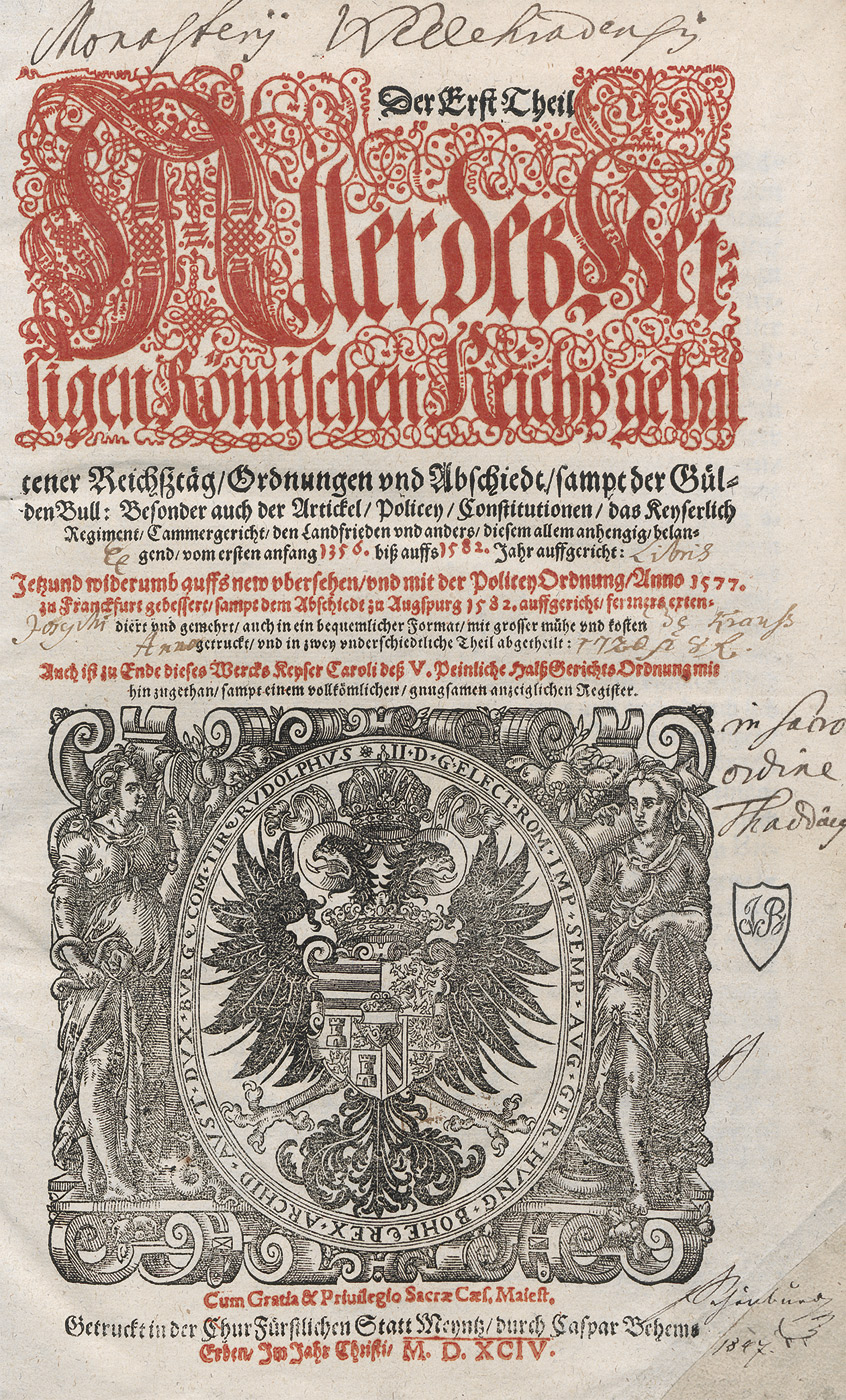 Monasterij Wellehradensis
Der Erst Theil
Aller deß Hei-
ligen Römischen Reichß gehal
tener Reichßtäg/Ordnungen vnd Abschiedt/sampt der Gül-
den Bull: Besonder auch der Artickel/Policey/Constitutionen/das Keyserlich
Regiment/Cammergericht/den Landfrieden vnd anders/diesem allem anhengig/belan-
gend/vom ersten anfang 1356. biß auffs 1582. Jahr auffgericht:
Ex Libris
Jetzund widerumb auffs new vbersehen/vnd mit der Policey Ordnung/Anno 1577.
zu Franckfurt gebessert/sampt dem Abschiedt zu Augspurg 1582. auffgericht/ferners exten-
diert vnd gemehrt/auch in ein bequemlicher Format/mit grosser mühe vnd kosten
Josephi de Krauß
getruckt/vnd in zwey vnderschiedtliche Theil abgetheilt:
Anno
Auch ist zu Ende dieses Wercks Keyser Caroli deß V. Peinliche Halß Gerichts Ordnung mit
hinzugethan/sampt einem vollkömlichen/gnugsamen anzeiglichen Register.
RVDOLPHVS II·D·G·ELECT·ROM·IMP·SEMP·AVG·GER·HVNG·BOHE·REX·ARCHID·AVST·DVX·BVRG·COM·TIR
in sacro
ordine
Thaddäus
JB
Cum Gratia & Priuilegio Sacræ Cæs. Maiest.
Getruckt in der ChurFürstlichen Statt Meyntz/durch Caspar Behems
Erben/Im Jahr Christi/ M. D. XCIV.
1847.